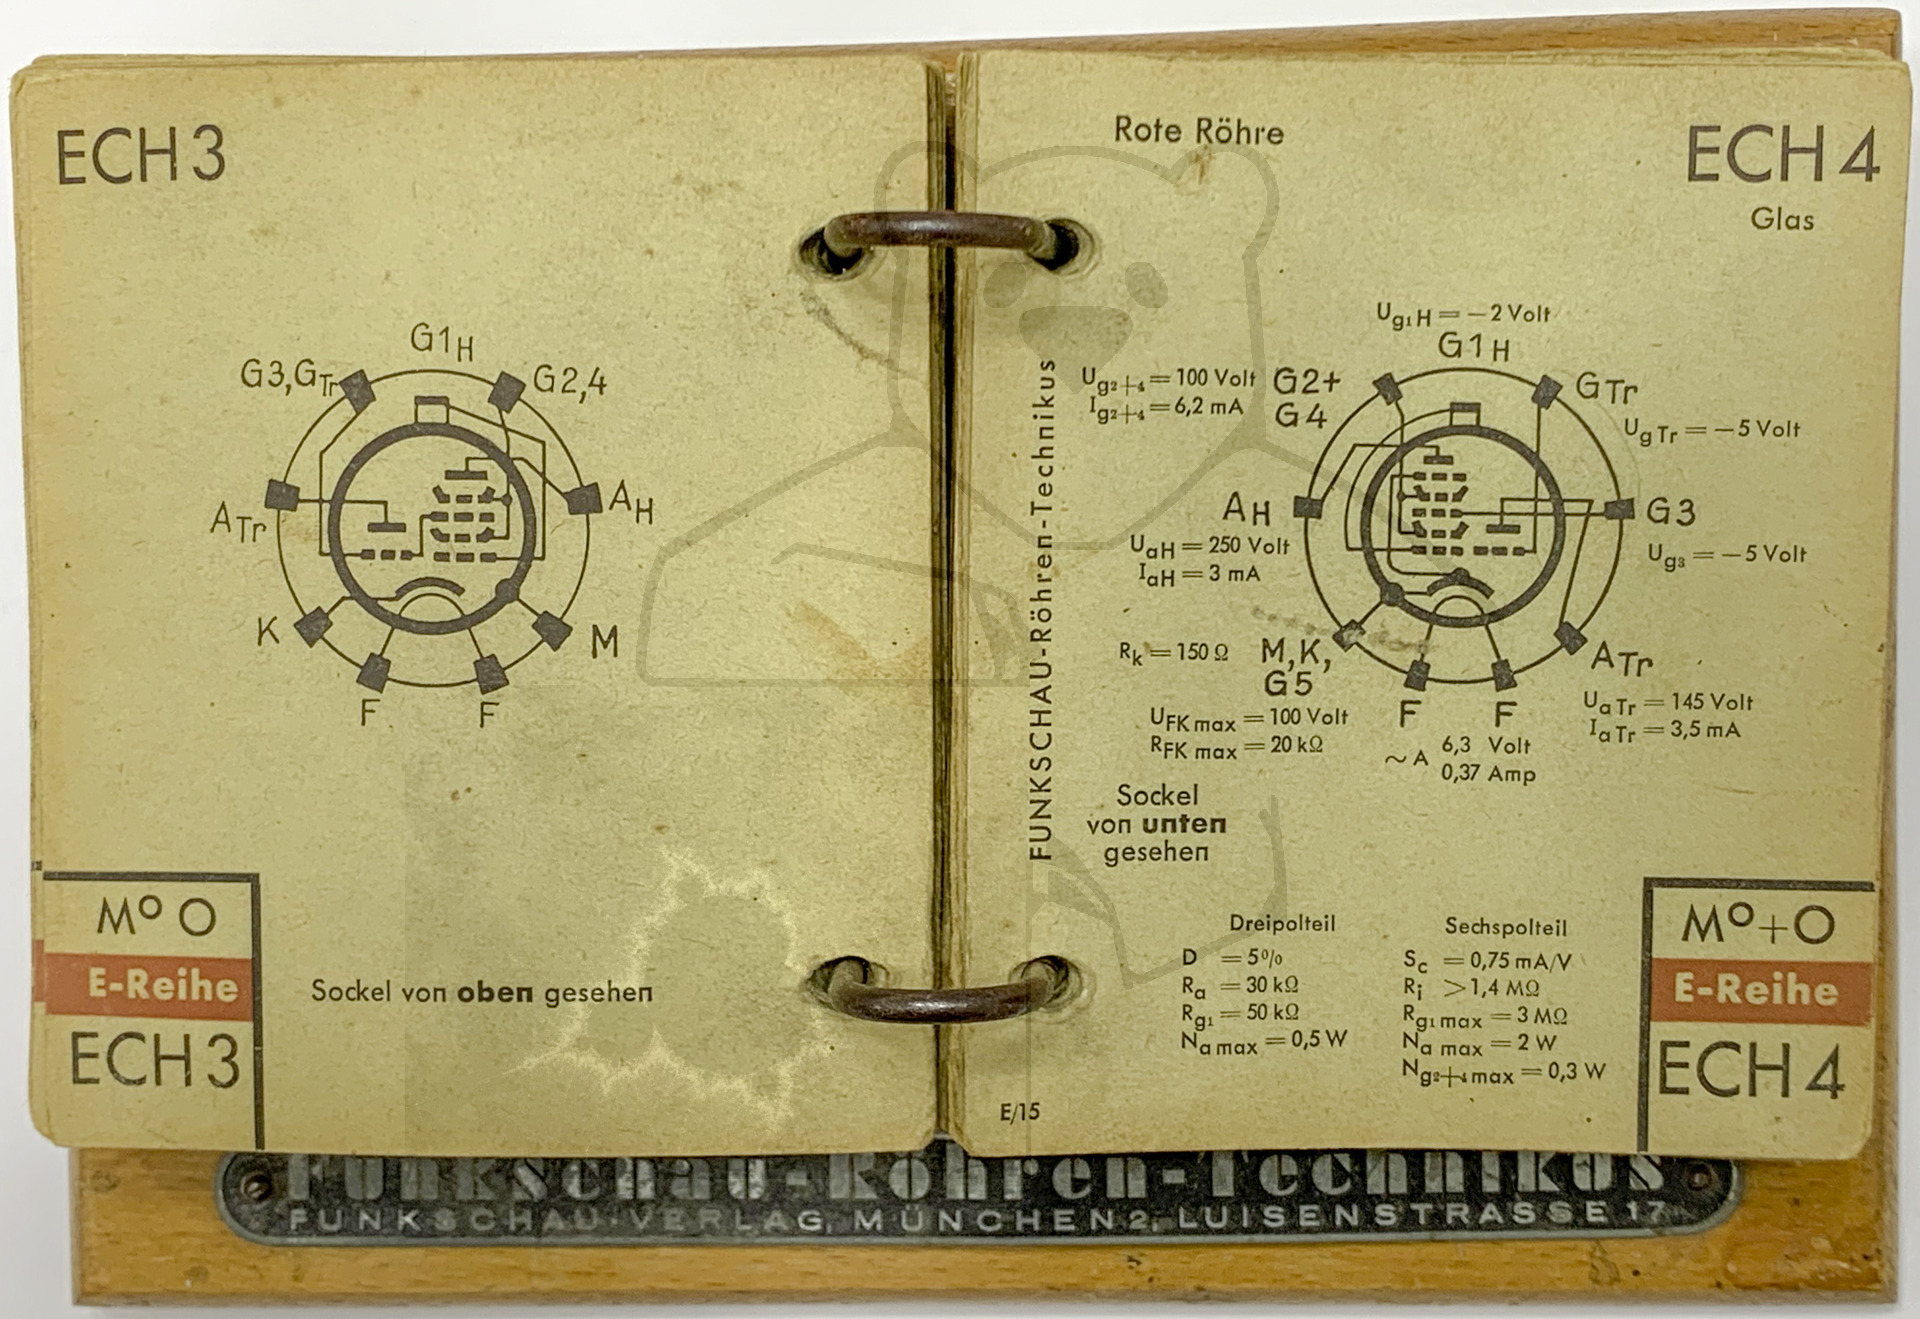 ECH 3
G1H
G3,GTr
G2,4
ATr
AH
K
M
F
F
M° O
E-Reihe
ECH 3
Sockel von oben gesehen
Rote Röhre
ECH 4
Glas
FUNKSCHAU-Röhren-Technikus
Ug1H = −2 Volt
G1H
Ug2+4 = 100 Volt
Ig2+4 = 6,2 mA
G2+
G4
GTr
UgTr = −5 Volt
AH
UaH = 250 Volt
IaH = 3 mA
G3
Ug3 = −5 Volt
Rk = 150 Ω
M,K,
G5
ATr
UaTr = 145 Volt
IaTr = 3,5 mA
UFK max = 100 Volt
RFK max = 20 kΩ
F
F
~ A
6,3 Volt
0,37 Amp
Sockel
von unten
gesehen
Dreipolteil
D = 5%
Ra = 30 kΩ
Rg1 = 50 kΩ
Na max = 0,5 W
Sechspolteil
Sc = 0,75 mA/V
Ri >1,4 MΩ
Rg1 max = 3 MΩ
Na max = 2 W
Ng2+4 max = 0,3 W
E/15
M°+O
E-Reihe
ECH 4
Funkschau-Röhren-Technikus
FUNKSCHAU-VERLAG, MÜNCHEN 2, LUISENSTRASSE 17